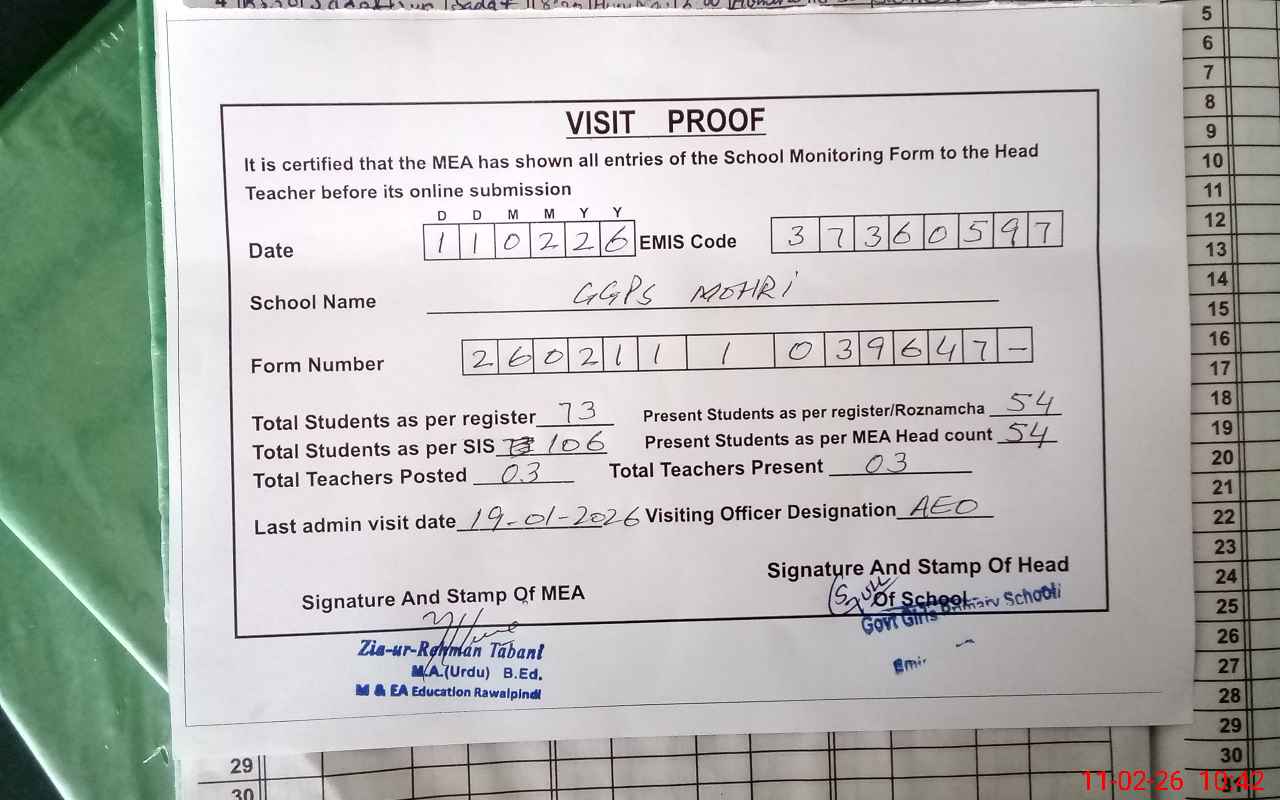 5
6
7
8
9
10
11
12
13
14
15
16
17
18
19
20
21
22
23
24
25
26
27
28
29
30
31
VISIT PROOF
It is certified that the MEA has shown all entries of the School Monitoring Form to the Head
Teacher before its online submission
D D M M Y Y
Date 1 1 0 2 2 6 EMIS Code 3 7 3 6 0 5 9 7
School Name GGPS MOHRI
Form Number 2 6 0 2 1 1 1 0 3 9 6 4 7 -
Total Students as per register 73 Present Students as per register/Roznamcha 54
Total Students as per SIS 106 Present Students as per MEA Head count 54
Total Teachers Posted 03 Total Teachers Present 03
Last admin visit date 19-01-2026 Visiting Officer Designation AEO
Signature And Stamp Of MEA Signature And Stamp Of Head
Of School
Zia-ur-Rehman Tabani
M.A.(Urdu) B.Ed.
M & EA Education Rawalpindi
Govt Girls Primary School
Emi
29
30
11-02-26 10:42